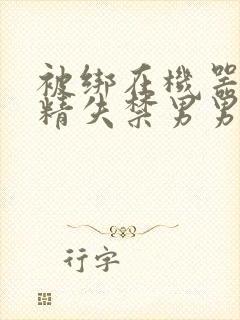 被绑在机器
精失禁男男
行字